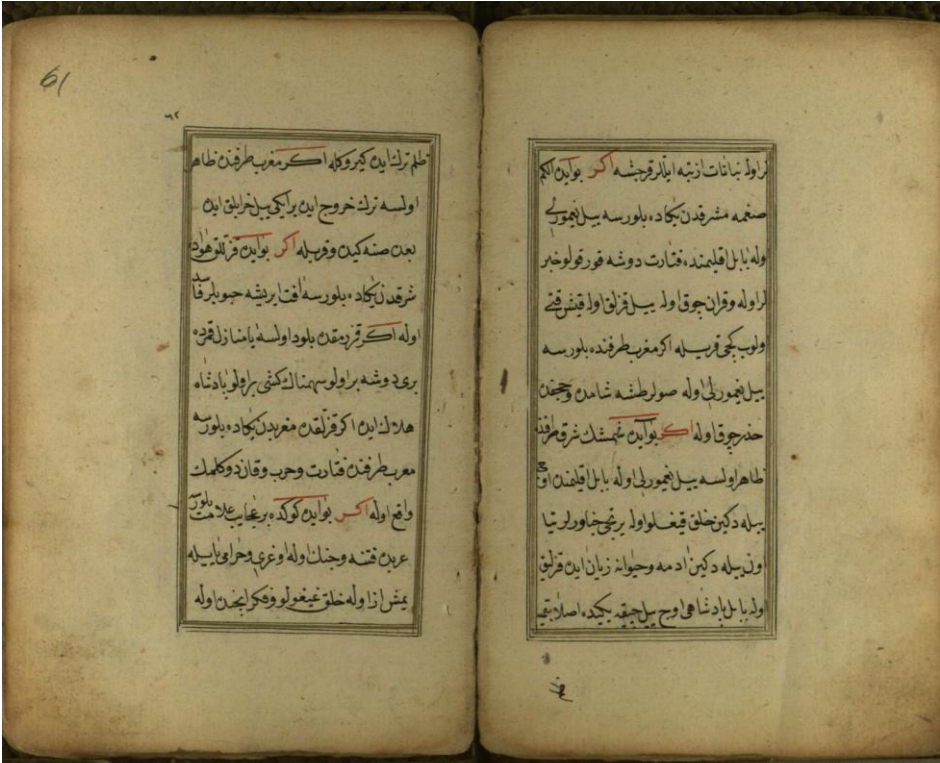 لر اوله نباتات ازبته ایللر قرجشه اکر بو آیده الکم
صغمه مشرقدن یکاده بلورسه ییل نیمورلی
اوله بابل اقلیمنده فتارت دوشه قورقولو خبر
لر اوله وقران جوق اوله ییل قزلق اوله قیش قتی
اولوب کجی قریله اکر مغرب طرفنده بلورسه
ییل نیمورلی اوله صولر طشه شامده
حذر جوق اوله اکر بو آیده شرق طرفنده
ظاهر اولسه ییل نیمورلی اوله بابل اقلیمنده
ییله دکین خلق قیغلو اوله یرنجی خناورلر
اون ییله دکین ادمه وحیوانه زیان ایده قزلق
اوله بابل پادشاهی اوج ییل جیقه یکیده اصلا
61
٦٢
ظلم ترك ایده کیرو کله اکر مغرب طرفنده ظاهر
اولسه ترك خروج ایده بر ایکی ییل خرابلق ایده
بعده صنه کیده وقریله اکر بو آیده قزللق هواده
شرقدن یکاده بلورسه افت ایریشه حبوبلر فاسد
اوله اکر قزرمقده بلود اولسه یا منازل قمرده
بری دوشه بر اولو سهمناك کشی بر اولو پادشاه
هلاك ایده اکر قزلقده مغربدن یکاده بلورسه
مغرب طرفنده فتارت وحرب وقان دوکلمك
واقع اوله اکر بو آیده کوکده بر عجایب علامت بلورسه
عربده فتنه وجنك اوله اوغری وحرامی یاییله
یمش از اوله خلق غیغولو وفکر ایجنده اوله